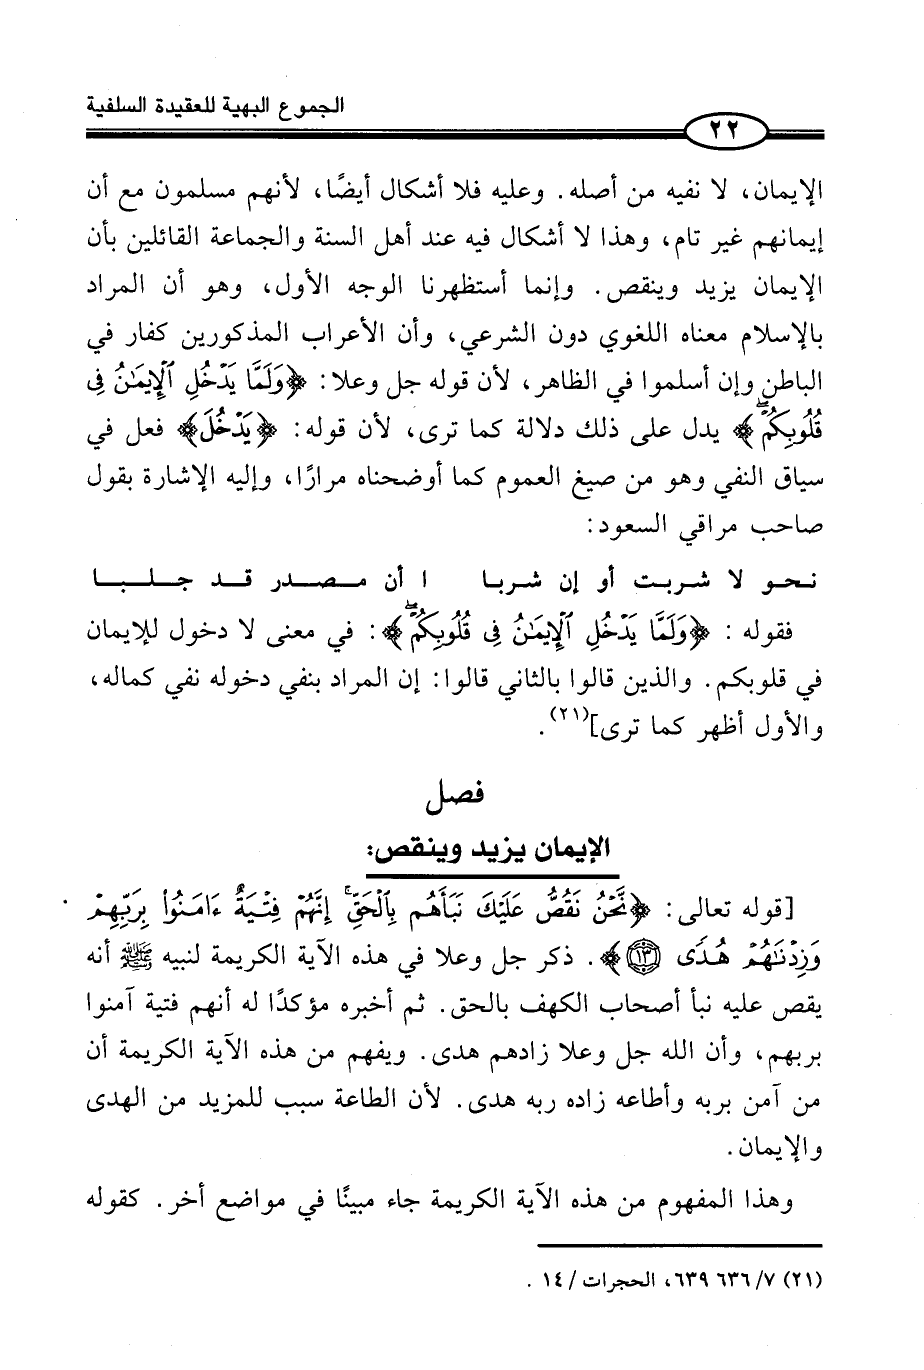 الجموع البهية للعقيدة السلفية
٢٢
الإيمان، لا نفيه من أصله. وعليه فلا أشكال أيضًا، لأنهم مسلمون مع أن
إيمانهم غير تام، وهذا لا أشكال فيه عند أهل السنة والجماعة القائلين بأن
الإيمان يزيد وينقص. وإنما أستظهرنا الوجه الأول، وهو أن المراد
بالإسلام معناه اللغوي دون الشرعي، وأن الأعراب المذكورين كفار في
الباطن وإن أسلموا في الظاهر، لأن قوله جل وعلا: ﴿وَلَمَّا يَدْخُلِ ٱلْإِيمَٰنُ فِى
قُلُوبِكُمْ ۖ﴾ يدل على ذلك دلالة كما ترى، لأن قوله: ﴿يَدْخُلَ﴾ فعل في
سياق النفي وهو من صيغ العموم كما أوضحناه مرارًا، وإليه الإشارة بقول
صاحب مراقي السعود:
نحو لا شربت أو إن شربا ا أن مصدر قد جلبا
فقوله : ﴿وَلَمَّا يَدْخُلِ ٱلْإِيمَٰنُ فِى قُلُوبِكُمْ ۖ﴾: في معنى لا دخول للإيمان
في قلوبكم. والذين قالوا بالثاني قالوا: إن المراد بنفي دخوله نفي كماله،
والأول أظهر كما ترى](٢١).
فصل
الإيمان يزيد وينقص:
[قوله تعالى: ﴿نَّحْنُ نَقُصُّ عَلَيْكَ نَبَأَهُم بِٱلْحَقِّ ۚ إِنَّهُمْ فِتْيَةٌ ءَامَنُوا۟ بِرَبِّهِمْ
وَزِدْنَٰهُمْ هُدًى ١٣﴾. ذكر جل وعلا في هذه الآية الكريمة لنبيه ﷺ أنه
يقص عليه نبأ أصحاب الكهف بالحق. ثم أخبره مؤكدًا له أنهم فتية آمنوا
بربهم، وأن الله جل وعلا زادهم هدى. ويفهم من هذه الآية الكريمة أن
من آمن بربه وأطاعه زاده ربه هدى. لأن الطاعة سبب للمزيد من الهدى
والإيمان.
وهذا المفهوم من هذه الآية الكريمة جاء مبينًا في مواضع أخر. كقوله
(٢١) ٧/ ٦٣٦ ٦٣٩، الحجرات / ١٤ .